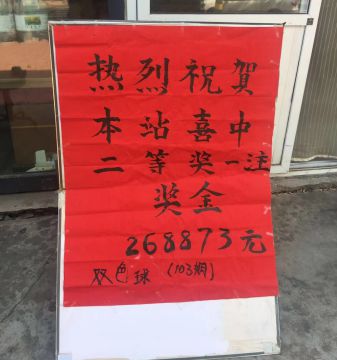 热烈祝贺
本站喜中
二等奖一注
奖金
268873元
双色球（103期）